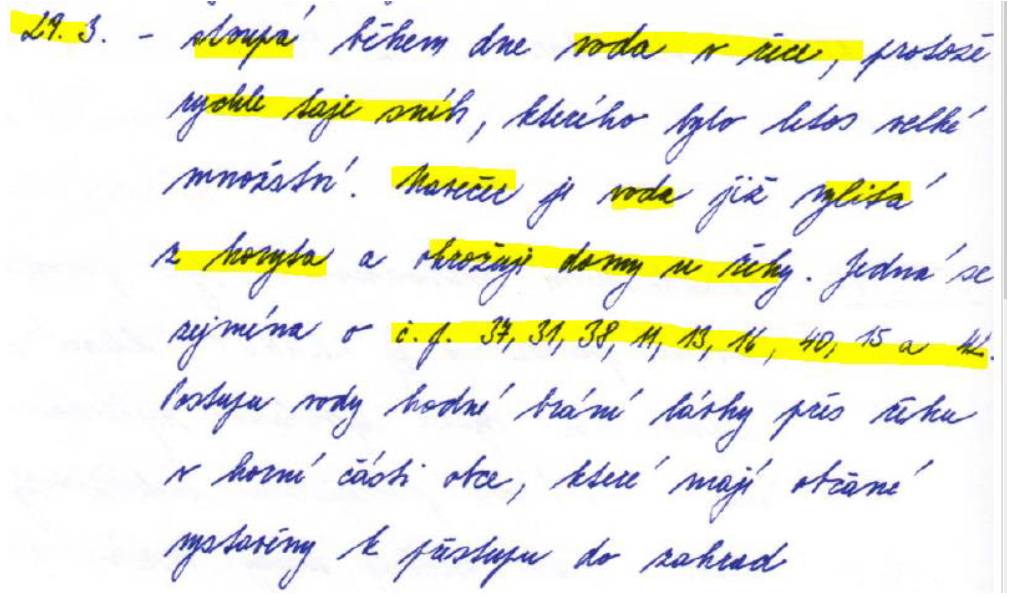 29. 3. - stoupá během dne voda v řece, protože
rychle taje sníh, kterého bylo letos velké
množství. Navečer je voda již vylitá
z koryta a ohrožuje domy u řeky. Jedná se
zejména o č. p. 37, 31, 38, 11, 13, 16, 40, 15 a 42.
Postupu vody hodně brání lávky přes řeku
v horní části obce, které mají občané
vystavěny k přístupu do zahrad